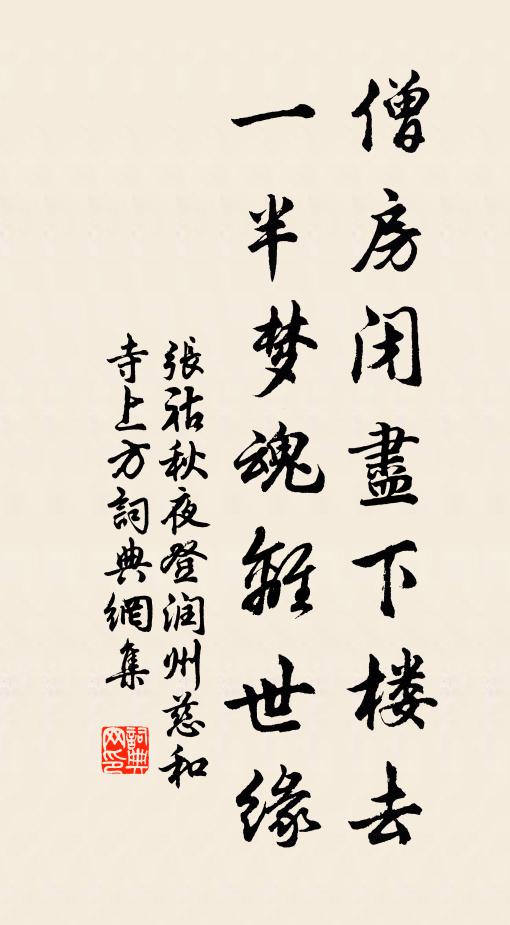 僧房闭盡下楼去
一半梦魂離世缘
張祜秋夜登润州慈和
寺上方詞典網集
詞典网印